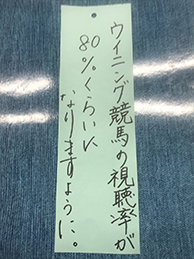 ウイニング競馬の視聴率が
80%くらいに
なりますように。